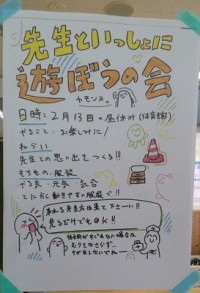 先生といっしょに
遊ぼうの会
カモンヌ。
日時：2月13日の昼休み(体育館)
やること：お楽しみに！
ねらい
先生との思い出をつくる!!
もちもの・服装
やる気・元気
とにかく動きやすい服装で!!
来れる先生方は来て下さい!!
見るだけでもOK!!